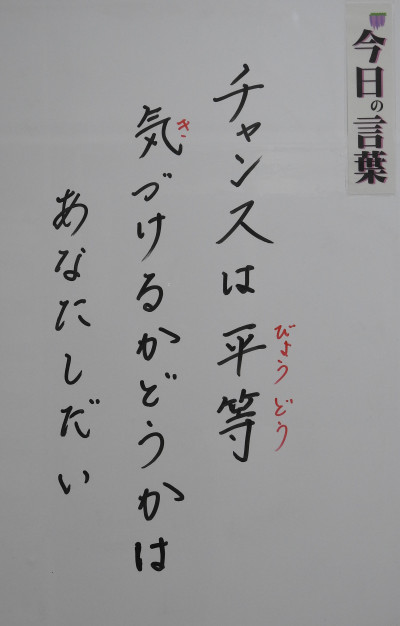 今日の言葉
チャンスは平等
びょうどう
気づけるかどうかは
き
あなたしだい